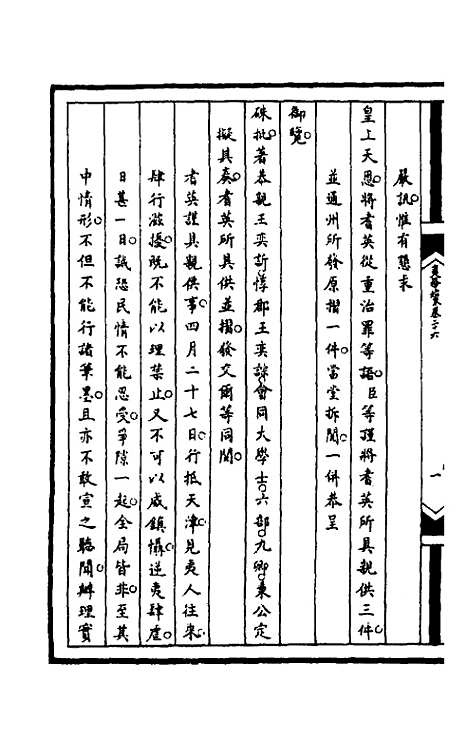 嚴訊惟有懇求
皇上天恩將耆英從重治罪等語臣等謹將耆英所具親供三件
並通州所發原摺一件當堂拆閱一併恭呈
御覽
硃批著恭親王奕訢惇郡王奕誴會同大學士六部九卿秉公定
擬具奏耆英所具供並摺發交爾等同閱
耆英謹具親供事四月二十七日行抵天津見夷人往來
肆行滋擾既不能以理禁止又不可以威鎮懾逆夷肆虐
日甚一日誠恐民情不能忍受爭隙一起全局皆非至其
中情形不但不能行諸筆墨且亦不敢宣之聽聞辦理實
卷二十六
一